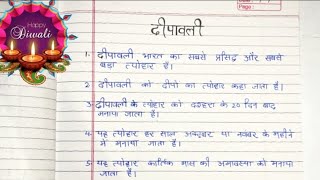 Happy
Diwali
Page:
दीपावली
1- दीपावली भारत का सबसे प्रसिद्ध और सबसे
बड़ा त्योहार है।
2- दीपावली को दीपो का त्योहार कहा जाता है।
3- दीपावली के त्योहार को दशहरा के 20 दिन बाद
मनाया जाता है।
4- यह त्योहार हर साल अक्टूबर या नवंबर के महीने
में मनाया जाता है।
5- यह त्योहार कार्तिक मास की अमावस्या को मनाया
जाता है।